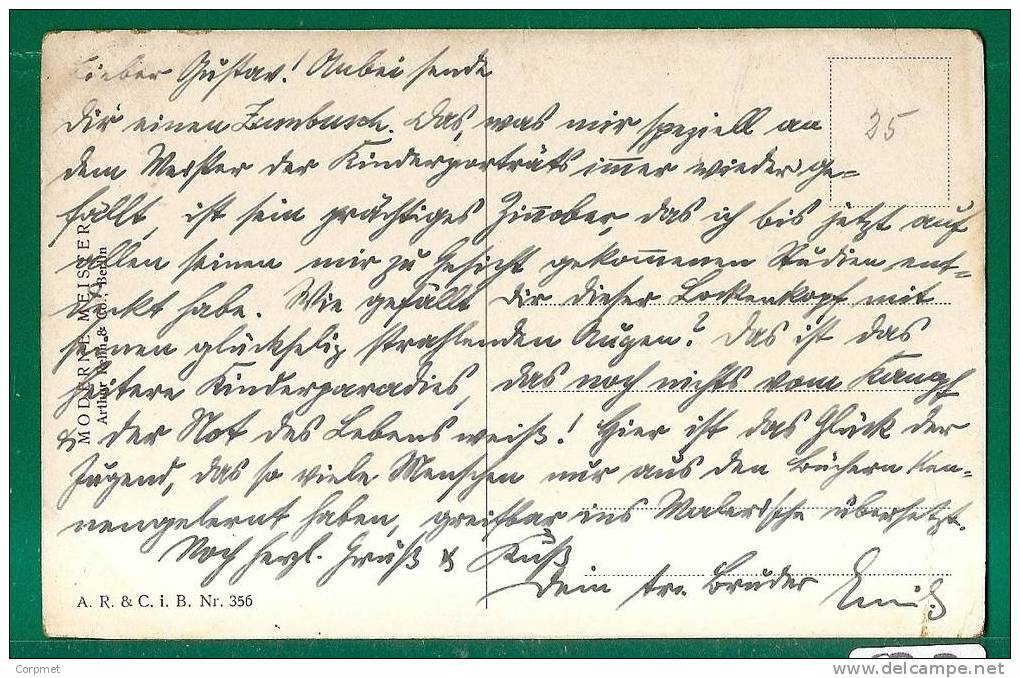 Lieber Gustav! Anbei sende
dir einen Zumbusch. Das, was mir speziell an
dem Meister der Kinderporträts immer wieder ge-
fällt, ist sein prächtiges Zinnober, das ich bis jetzt auf
allen seinen mir zu Gesicht gekommenen Studien ent-
deckt habe. Wie gefällt dir dieser Lockenkopf mit
seinen glückselig strahlenden Augen? Das ist das
heitere Kinderparadies, das noch nichts vom Kampf
& der Not des Lebens weiß! Hier ist das Glück der
Jugend, das so viele Menschen nur aus den Büchern ken-
nengelernt haben, greifbar ins Malerische übersetzt.
Noch herzl. Gruß & Kuß
Dein tr. Bruder Emil
25
MODERNE MEISTER
Arthur Rehn & Co., Berlin
A. R. & C. i. B. Nr. 356
Corpmet
www.delcampe.net